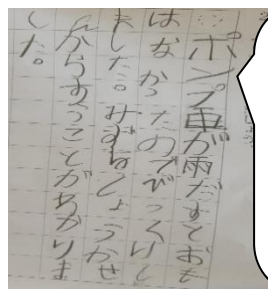 ポンプ車が雨だすとおも
はなかったのでびっくりし
ました。みずはしょうかせ
んからすうことがわかりま
した。